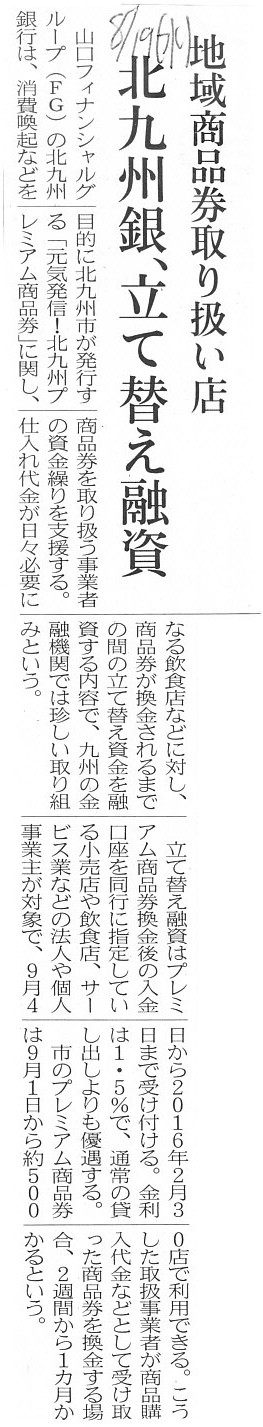 8/19(水)
地域商品券取り扱い店
北九州銀、立て替え融資
山口フィナンシャルグ
ループ（ＦＧ）の北九州
銀行は、消費喚起などを
目的に北九州市が発行す
る「元気発信！北九州プ
レミアム商品券」に関し、
商品券を取り扱う事業者
の資金繰りを支援する。
仕入れ代金が日々必要に
なる飲食店などに対し、
商品券が換金されるまで
の間の立て替え資金を融
資する内容で、九州の金
融機関では珍しい取り組
みという。
立て替え融資はプレミ
アム商品券換金後の入金
口座を同行に指定してい
る小売店や飲食店、サー
ビス業などの法人や個人
事業主が対象で、９月４
日から２０１６年２月３
日まで受け付ける。金利
は１・５％で、通常の貸
し出しよりも優遇する。
市のプレミアム商品券
は９月１日から約５００
０店で利用できる。こう
した取扱事業者が商品購
入代金などとして受け取
った商品券を換金する場
合、２週間から１カ月か
かるという。